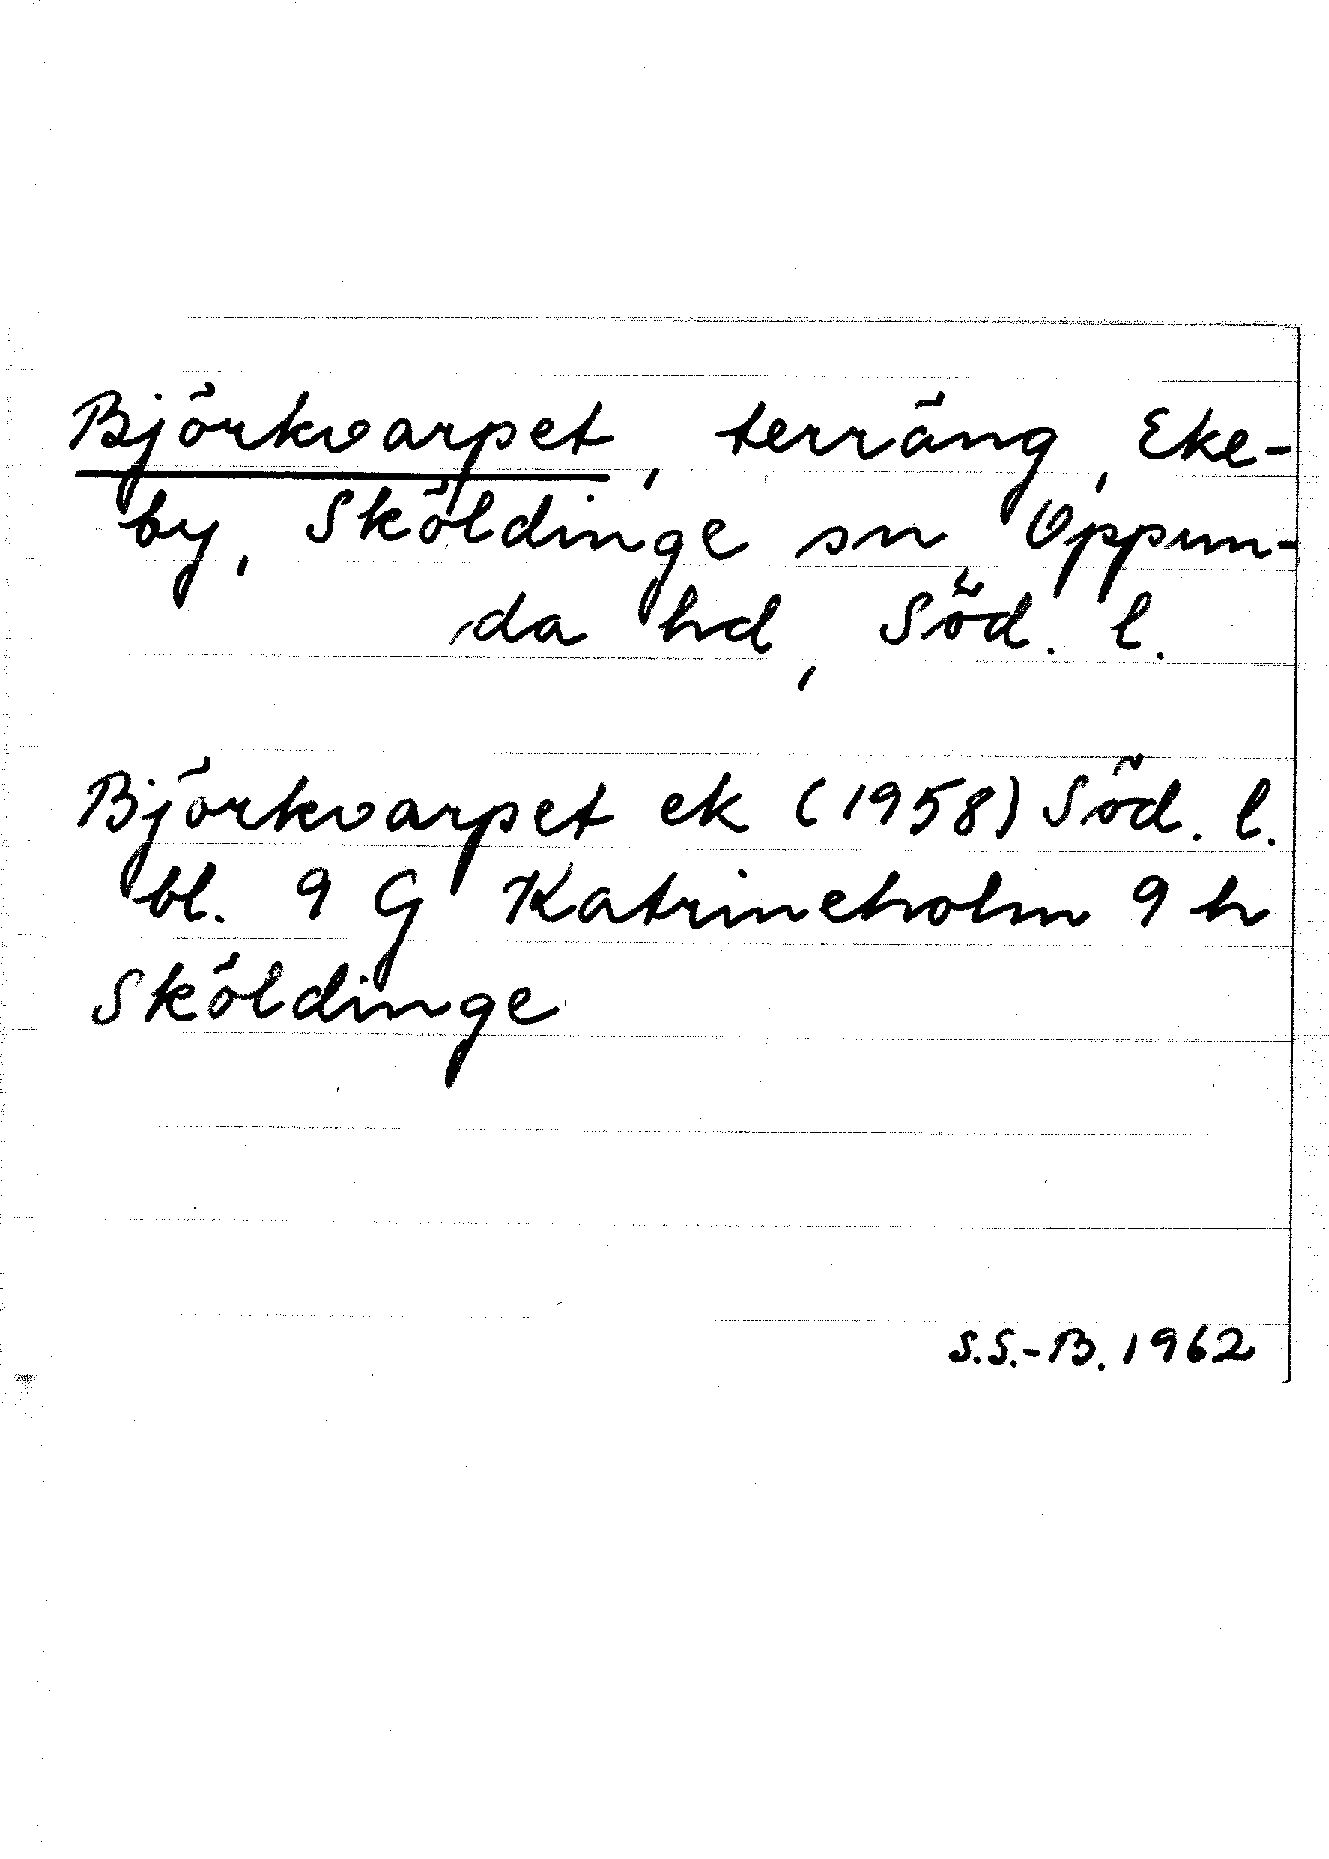 Björkvarpet, terräng, Eke-
by, Sköldinge sn, Oppun-
da hd, Söd. l.
Björkvarpet ek (1958) Söd. l.
bl. 9 G Katrineholm 9 h
Sköldinge
S.S.-B. 1962